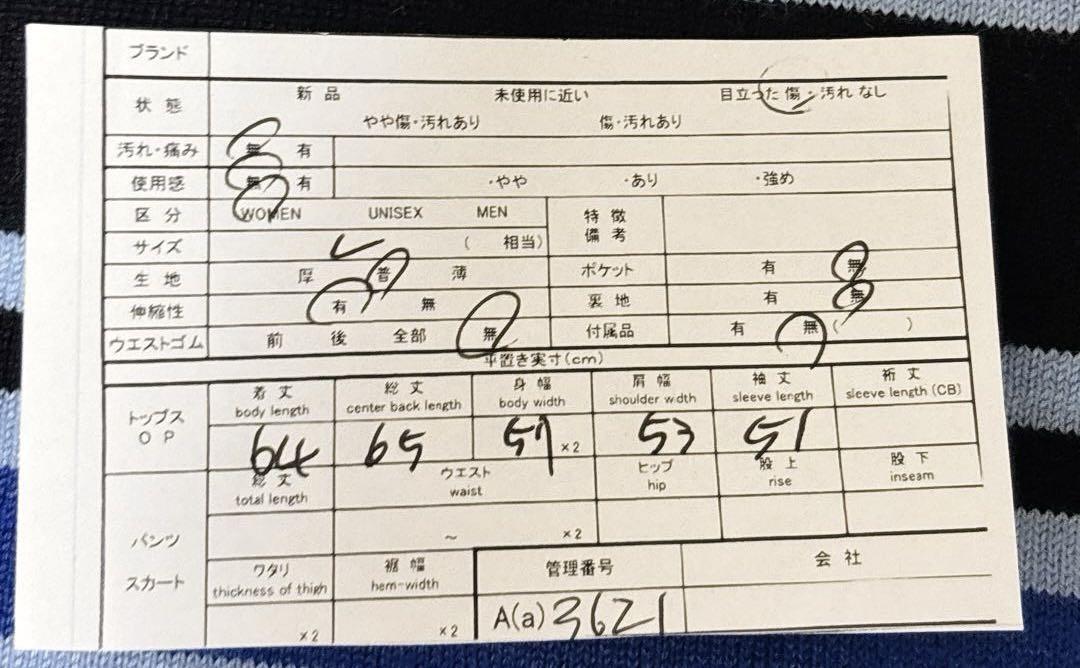 ブランド
状態 新品 未使用に近い 目立った傷・汚れなし
やや傷・汚れあり 傷・汚れあり
汚れ・痛み 無 有
使用感 無 有 ・やや ・あり ・強め
区分 WOMEN UNISEX MEN 特徴
備考
サイズ ( 相当)
生地 厚 普 薄 ポケット 有 無
伸縮性 有 無 裏地 有 無
ウエストゴム 前 後 全部 無 付属品 有 無 ( )
平置き実寸(cm)
トップス
OP
着丈 総丈 身幅 肩幅 袖丈 裄丈
body length center back length body width shoulder width sleeve length sleeve length (CB)
64 65 57 ×2 53 51
パンツ
スカート
総丈 ウエスト ヒップ 股上 股下
total length waist hip rise inseam
~ ×2
ワタリ 裾幅 管理番号 会社
thickness of thigh hem-width
×2 ×2 A(a) 3621